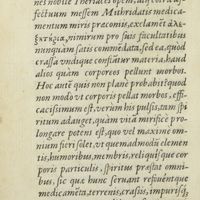 nes nobile Theriaces opem, aut certã as-
sectum messem Mithridatis medica-
mentum miris præconiis, exclamẽt ἀλε-
ξητήρια, nimirum pro suis facultatibus
nunquàm satis commẽdata, sed ea, quòd
crassa vndique consũatur materia, haud
aliòs quàm corporeos pellunt morbos.
Hoc ante quis non planè probabit quod
non modò vt corporis pellat morbos, effi-
cacissimum est. verùm his pulsis, tam spi-
ritum adauget, quàm vitã mirificè pro-
longare potens est, quo vel maximè om-
nium fieri solet, vt quẽadmodũ elemen-
tis, humoribus, membris, reliquisq́ue cor
poris particulis, spiritus præstat omni-
bus, sic quæ hunc seruant respuẽntque
medicamẽta, terrenis, crassis, impurisq́;